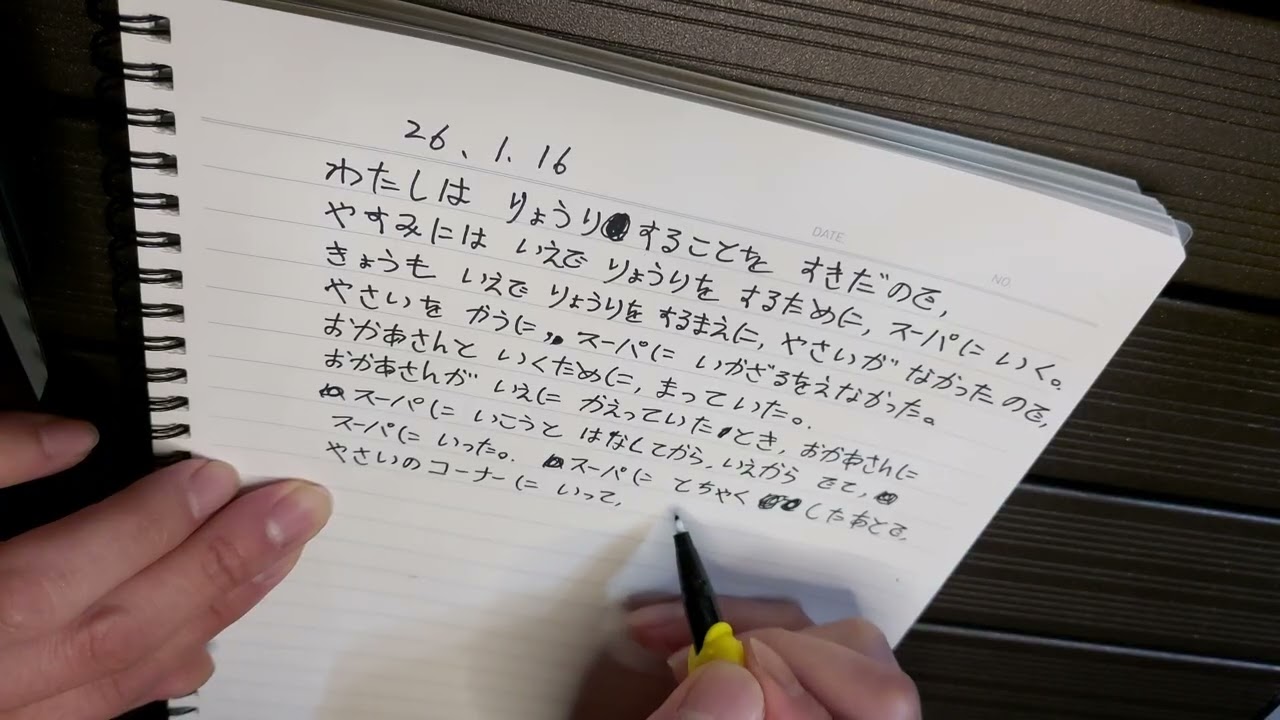 DATE
NO.
26、1.16
わたしは りょうり することを すきだので、
やすみには いえで りょうりを するために、スーパに いく。
きょうも いえで りょうりを するまえに、やさいが なかったので、
やさいを かうに、スーパに いかざるをえなかった。
おかあさんと いくために、まっていた。
おかあさんが いえに かえっていた とき、おかあさんに
スーパに いこうと はなしてから、いえから でて、
スーパに いった。 スーパに とちゃく したあとで、
やさいの コーナーに いって、